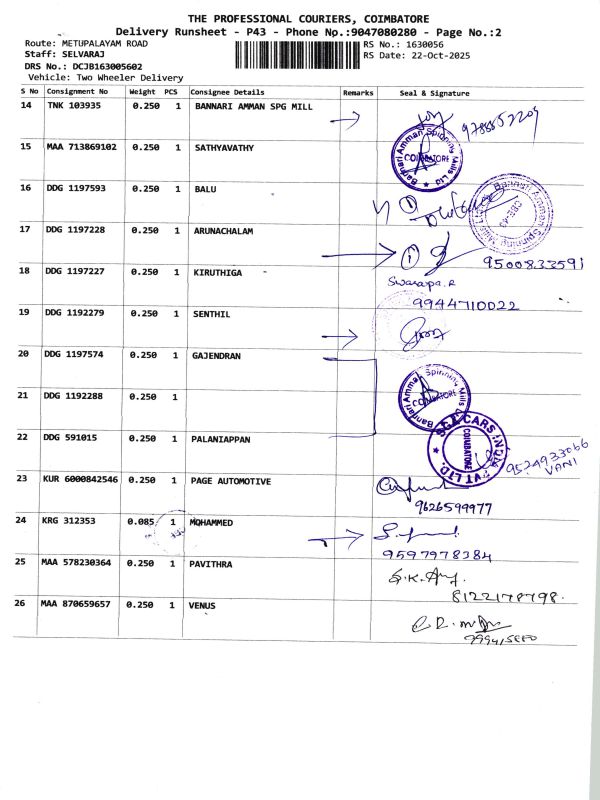 THE PROFESSIONAL COURIERS, COIMBATORE
Delivery Runsheet - P43 - Phone Np.:9047080280 - Page No.:2
Route: METUPALAYAM ROAD
RS No.: 1630056
Staff: SELVARAJ
RS Date: 22-Oct-2025
DRS No.: DCJB163005602
Vehicle: Two Wheeler Delivery
S No Consignment No Weight PCS Consignee Details Remarks Seal & Signature
14 TNK 103935 0.250 1 BANNARI AMMAN SPG MILL
15 MAA 713869102 0.250 1 SATHYAVATHY
Bannari Amman Spinning Mills Ltd COIMBATORE
16 DDG 1197593 0.250 1 BALU
Bannari Amman Spinning Mills Ltd CBE-43
17 DDG 1197228 0.250 1 ARUNACHALAM
9500833591
18 DDG 1197227 0.250 1 KIRUTHIGA
Swarupa.R
9944710022
19 DDG 1192279 0.250 1 SENTHIL
20 DDG 1197574 0.250 1 GAJENDRAN
Bannari Amman Spinning Mills Ltd COIMBATORE
21 DDG 1192288 0.250 1
22 DDG 591015 0.250 1 PALANIAPPAN
CARS INDIA PVT LTD. COIMBATORE
9524933066
VANI
23 KUR 6000842546 0.250 1 PAGE AUTOMOTIVE
9626599977
24 KRG 312353 0.085 1 MOHAMMED
9597978384
25 MAA 578230364 0.250 1 PAVITHRA
8122178798.
26 MAA 870659657 0.250 1 VENUS